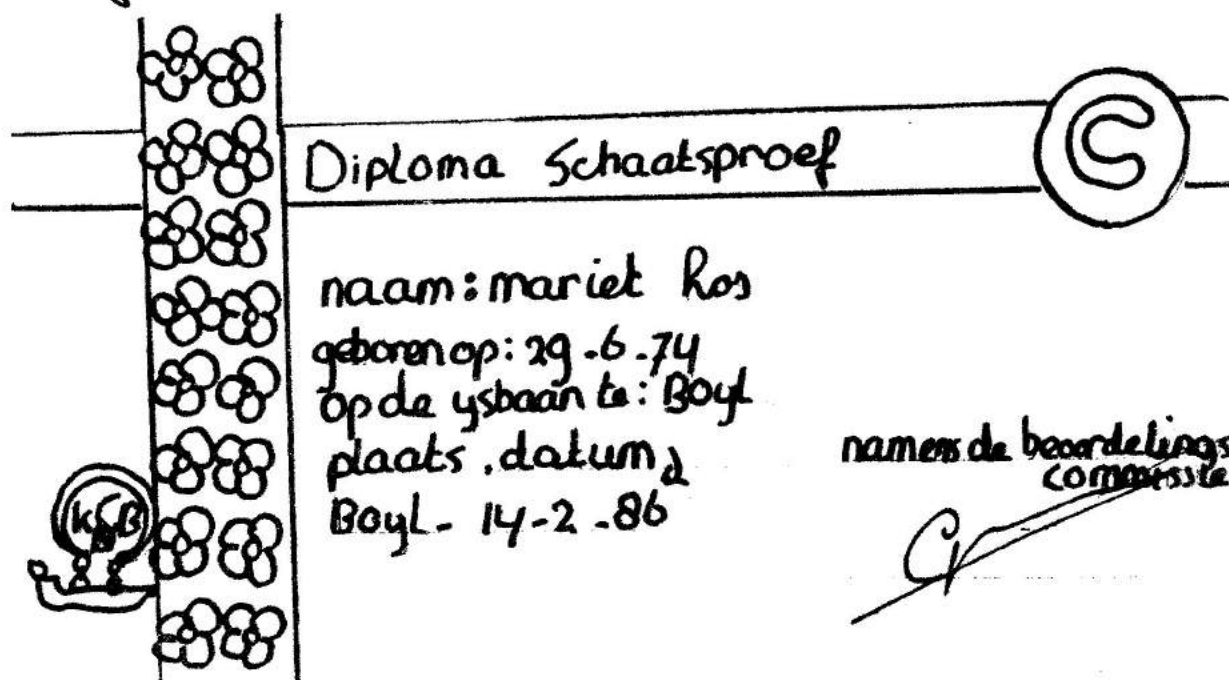 Diploma Schaatsproef
C
naam: mariet Ros
geboren op: 29-6-74
op de ysbaan te: Boyl
plaats, datum,
Boyl - 14-2-86
namens de beoordelings
commissie